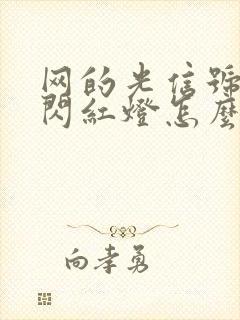 网的光信號
閃紅燈怎麼
向孝勇